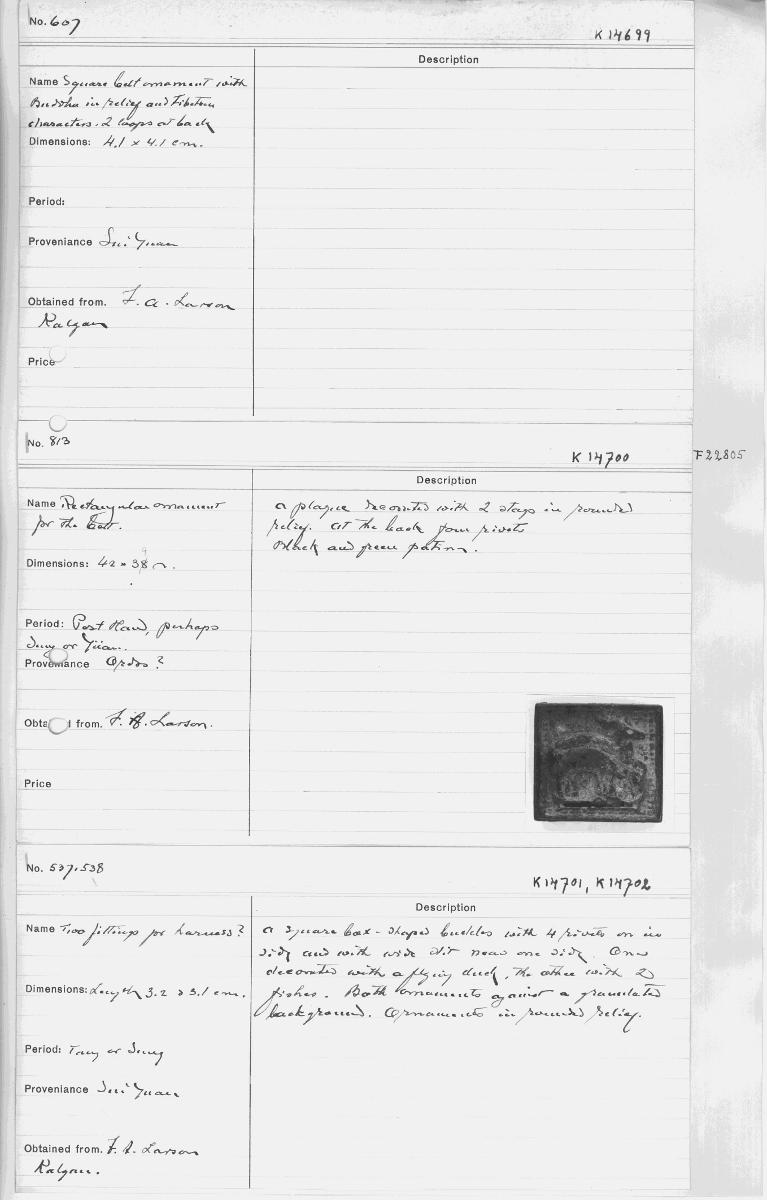 No. 607
K 14699
Description
Name Square belt ornament with
Buddha in relief and Tibetan
characters. 2 loops at back
Dimensions: 4.1 x 4.1 cm.
Period:
Proveniance Sui Yuan
Obtained from. F. A. Larson
Kalgan
Price
No. 813
K 14700
F22805
Description
Name Rectangular ornament
for the belt.
a plaque decorated with 2 stags in rounded
relief. At the back four rivets
Black and green patina.
Dimensions: 42 x
Period: Post Han, perhaps
Sung or Yüan.
Proveniance Ordos?
Obta d from. F. A. Larson.
Price
No. 537, 538
K14701, K14702
Description
Name Two fittings for harness?
a square box-shaped buckles with 4 rivets on
side and with wide slit near one side. One
decorated with a flying duck, the other with 2
fishes. Both ornaments against a granulated
background. Ornaments in rounded relief.
Dimensions: Length 3.2 x 3.1 cm.
Period: Tang or Sung
Proveniance Sui Yuan
Obtained from. F. A. Larson
Kalgan.